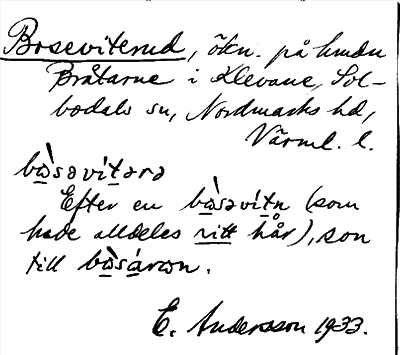 Boseviterud, ökn. på hmdn
Bråtarne i Klevane, Sil-
bodals sn, Nordmarks hd,
Värml. l.
bòsəvitərə
Efter en bòsəvitn (som
hade alldeles vitt hår), son
till bòsáron.
E. Andersson 1933.